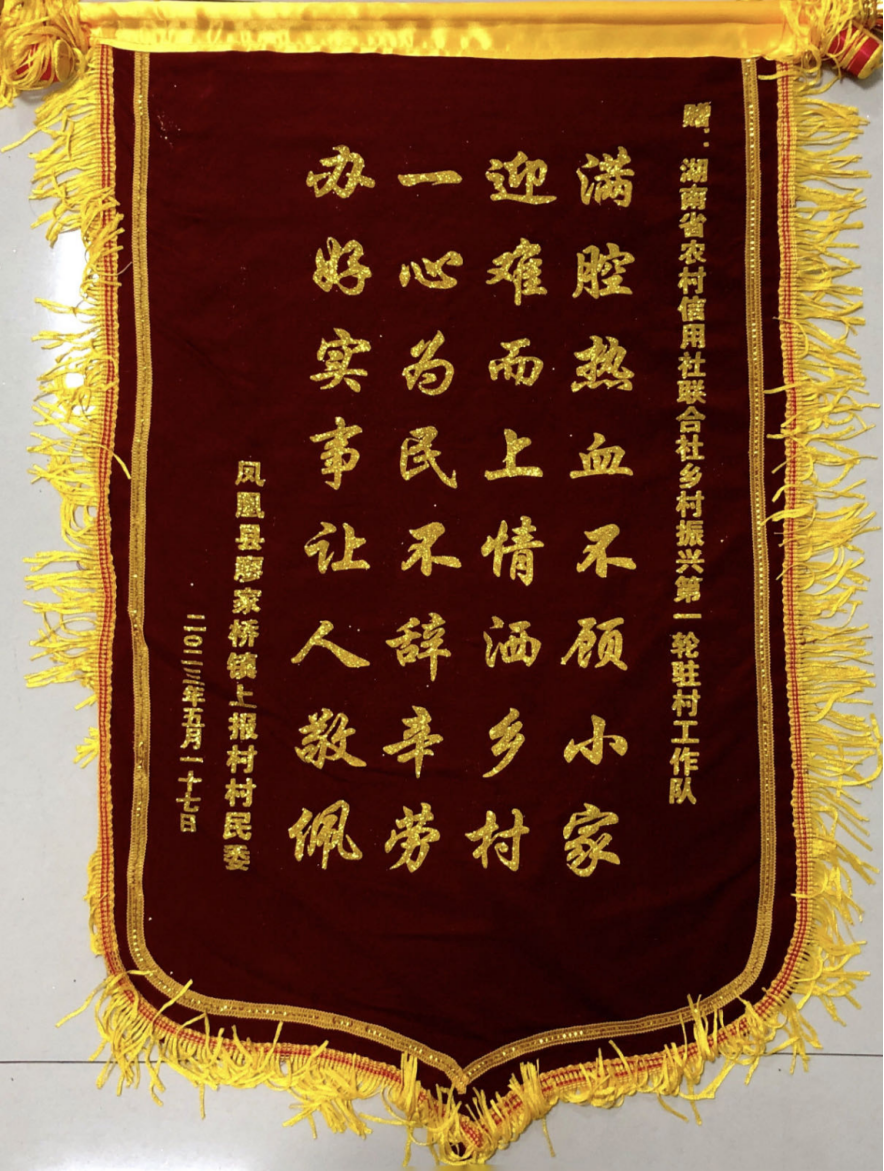 赠：湖南省农村信用社联合社乡村振兴第一轮驻村工作队
满腔热血不顾小家
迎难而上情洒乡村
一心为民不辞辛劳
办好实事让人敬佩
凤凰县廖家桥镇上报村村民委
二〇二三年五月一十七日